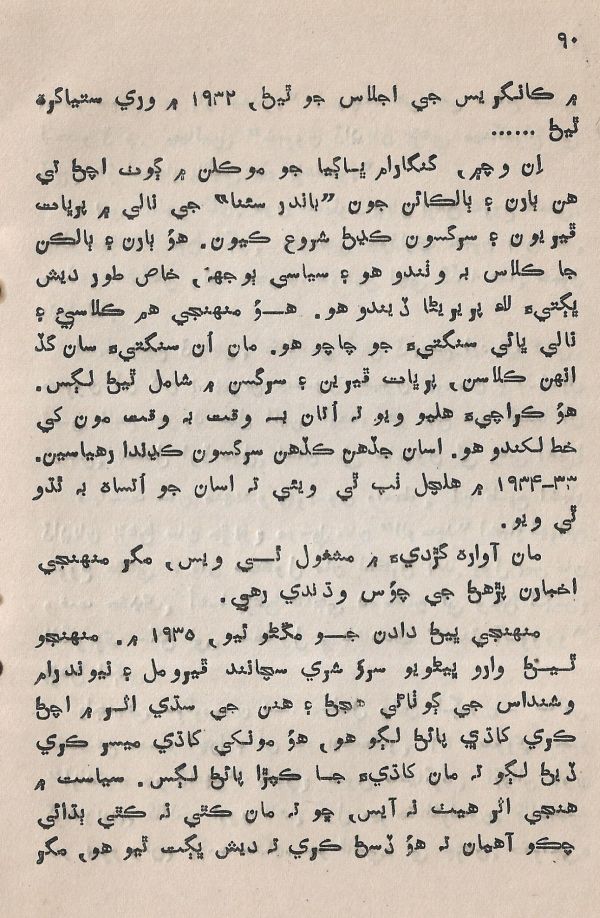 ۹۰
۾ ڪانگريس جي اجلاس جو ٿيڻ، ۱۹۳۲ ۾ وري ستياگره
ٿيڻ ......
اِن وچ ۾، گنگارام ڀساڳيا جو موڪلن ۾ ڳوٺ اچڻ ٿي
هن ٻارن ۽ ٻالڪائن جون ”ٻاندر سئنا“ جي نالي ۾ پرڀات
ڦيريون ۽ سرگسون ڪڍڻ شروع ڪيون. هؤ ٻارن ۽ ٻالڪن
جا ڪلاس به وٺندو هو ۽ سياسي ٻوجهه، خاص طور ديش
ڀڳتيءَ لاءِ پريرڻا ڏيندو هو. هــؤ منهنجي هم ڪلاسيءَ ۽
نالي ڀائي سنگتيءَ جو چاچو هو. مان اُن سنگتيءَ سان گڏ
انهن ڪلاسن، پرڀات ڦيرين ۽ سرگسن ۾ شامل ٿيڻ لڳس.
هؤ ڪراچيءَ هليو ويو ته اُتان بــه وقت به وقت مون کي
خط لکندو هو. اسان جڏهن ڪڏهن سرگسون ڪڍندا رهياسين.
۳۳ـ۱۹۳۴ ۾ هلچل ٺپ ٿي ويئي ته اسان جو اُتساهه به ٿڌو
ٿي ويو.
مان آواره گرديءَ ۾ مشغول ٿــي ويس، مگر منهنجي
اخبارن پڙهڻ جي چؤس وڌندي رهي.
منهنجي ڀيڻ دادن جــو مڱڻو ٿيو، ۱۹۳۵ ۾. منهنجو
ٿيــڻ وارو ڀيڻويو سرڳ شري سچانند ڦيرومل ۽ نيوندرام
وشنداس جي ڳوٺائي هجڻ ۽ هنن جي سڌي اثــر ۾ اچڻ
ڪري کاڌي پائڻ لڳو هو، هؤ مونکي کاڌي ميسر ڪري
ڏيڻ لڳو ته مان کاڌيءَ جــا ڪپڙا پائڻ لڳس. سياست ۾
هنجي اثر هيٺ نه آيس، ڇو ته مان ڪٿي نه ڪٿي ٻڌائي
چڪو آهيان ته هؤ ڏسڻ ڪري نه ديش ڀڳت ٿيو هو، مگر